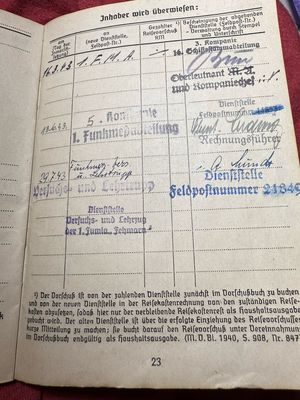 Inhaber wird überwiesen:
am
an
(neue Dienststelle,
Feldpost-Nr.)
Gezahlter
Reisevorschuß
RM
Bescheinigung der abgebenden
(Dienststelle, Feldpost-Nr.)
Verwaltung durch Stempel
und Unterschrift
3. Kompanie
16. Schiffsstammabteilung
1. F. M. A.
Oberleutnant M. A.
und Kompaniechef
5. Kompanie
1. Funkmeßabteilung
Dienststelle
Rechnungsführer
29.7.43
Versuchs- und Lehrzug
Dienststelle
Feldpostnummer
Dienststelle
Versuchs- und Lehrzug
der 1. Fumla. Fehmarn
¹) Der Vorschuß ist von der zahlenden Dienststelle zunächst im Vorschußbuch zu buchen
und von der neuen Dienststelle in der Reisekostenrechnung von den zuständigen Reise-
kosten abzusetzen, sodaß hier nur der verbleibende Reisekostenrest als Haushaltsausgabe
gebucht wird. Der alten Dienststelle ist über die erfolgte Einziehung des Reisevorschusses
kurze Mitteilung zu machen; sie bucht darauf den Reisevorschuß unter Vereinnahmung
im Vorschußbuch endgültig als Haushaltsausgabe. (M. D. Bl. 1940, S. 908, Nr. 847
23